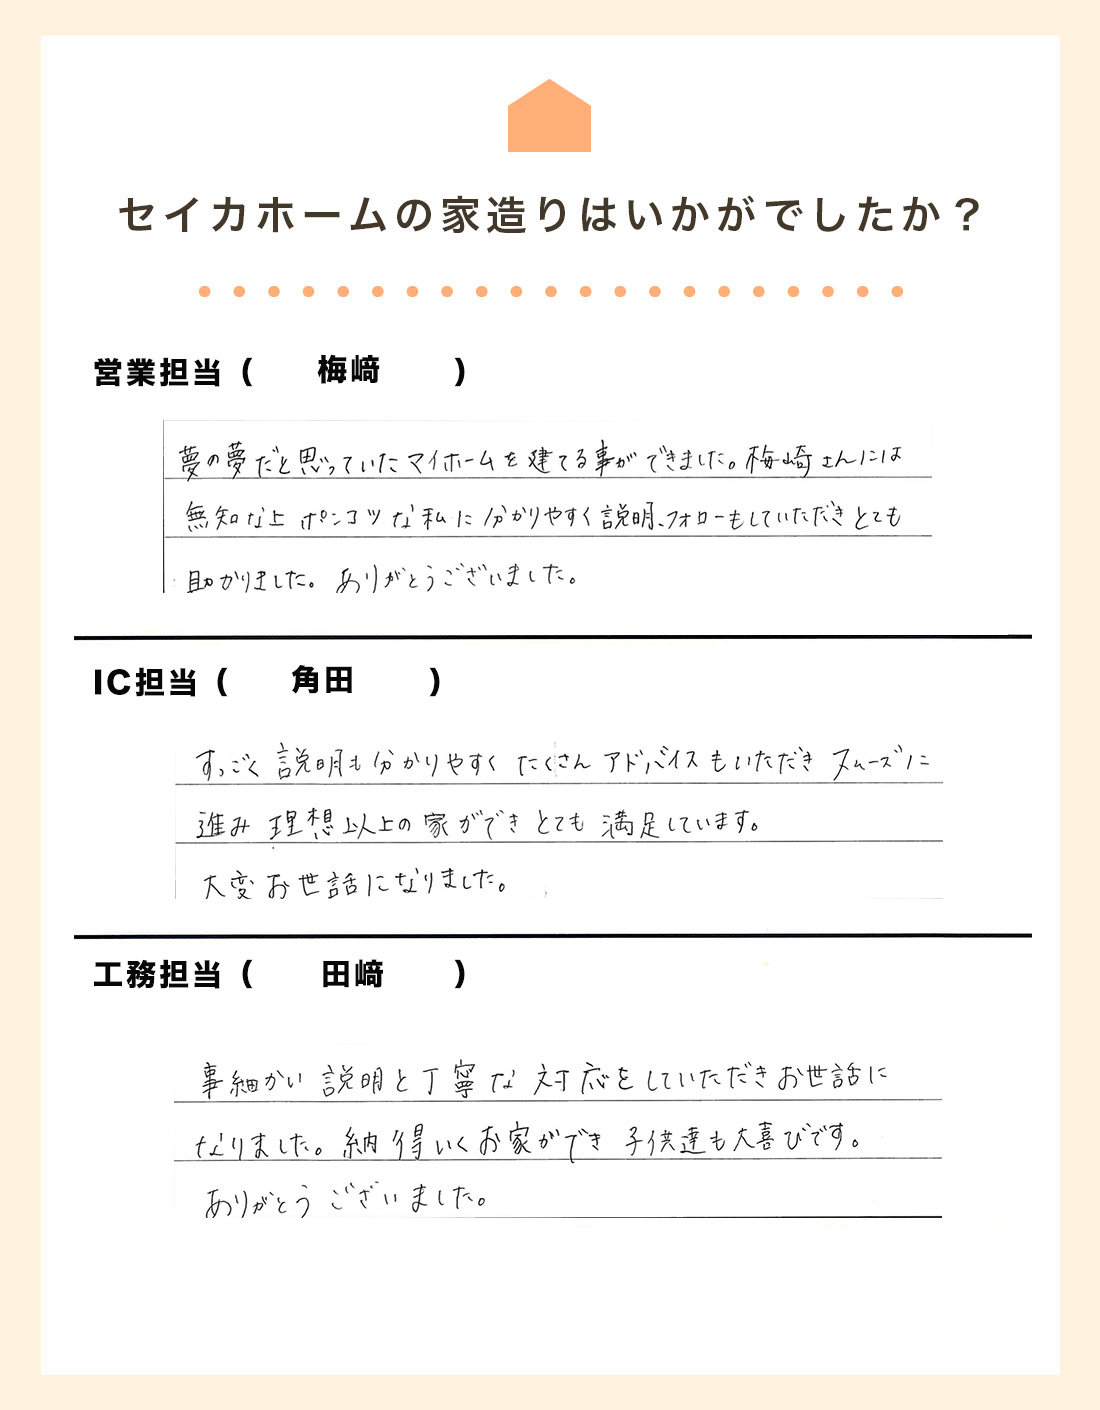 セイカホームの家造りはいかがでしたか？
営業担当（ 梅﨑 ）
夢の夢だと思っていたマイホームを建てる事ができました。梅崎さんには
無知な上ポンコツな私に分かりやすく説明、フォローもしていただきとても
助かりました。ありがとうございました。
IC担当（ 角田 ）
すっごく説明も分かりやすくたくさんアドバイスもいただきスムーズに
進み理想以上の家ができとても満足しています。
大変お世話になりました。
工務担当（ 田﨑 ）
事細かい説明と丁寧な対応をしていただきお世話に
なりました。納得いくお家ができ子供達も大喜びです。
ありがとうございました。